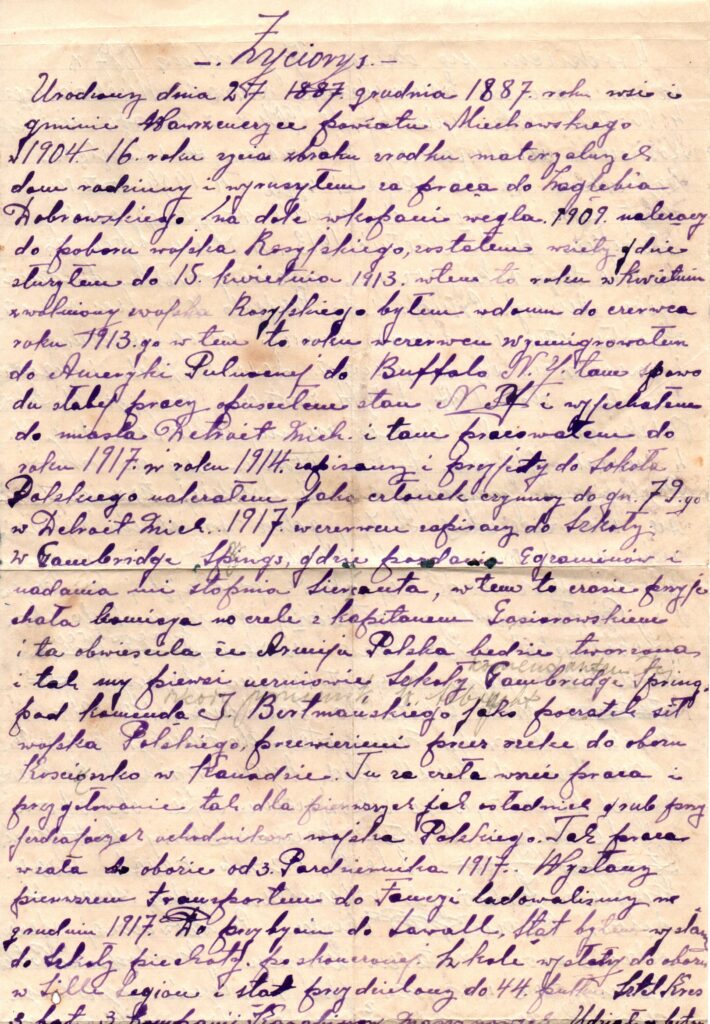 -. Życiorys. -
Urodzony dnia 27 1887 grudnia 1887. roku wsi i
gminie Wawrzenczyce powiatu Miechowskiego
w 1904. 16. roku zycia zbraku srodku materyalnych
dom rodzinny i wyruszyłem za praca do Zagłebia
Dobrowskiego na dole wkopani wegla. 1909. nalezacy
do poboru wojska Rosyjskiego, zostałem wziety gdzie
słuzyłem do 15. kwietnia 1913. wtem to roku w kwietniu
zwolniony zwojska Rosyjskiego byłem wdomu do czerwca
roku 1913.go w tem to roku wczerwcu wyemigrowałem
do Ameryki Pułnocnej do Buffalo N.Y. tam spowo
du słabej pracy opuściłem stan N.Y. i wyjechałem
do miasta Detroit Mich. i tam pracowałem do
roku 1917. w roku 1914. zapisany i przyjety do Sokoła
Polskiego nalezałem jako członek czynny do gn. 79.go
w Detroit Mich. 1917. wczerwcu zapisany do Szkoły
w Cambridge Spings, gdzie pozdaniu Egzaminów i
nadania mi stopnia Sierzanta, wtem to czasie przyje
chała komisja na czele z kapitanem Gasiorowskiem
i ta obwiescila że Armija Polska bedzie tworzona
i tak my piersi uczniowie Szkoły Cambridge Spring,
pod komenda J. Bertmanskiego jako poczatek sił
wojska Polskiego, przewiezieni przez rzeke do obozu
Kosciuszko w Kanadzie. Tu za czeła wrzeć praca i
przygotowanie tak dla pierwszych jak ostadnich grub przy
jerdzajaczch ochodników wojska Polskiego. Tak praca
wzała w obozie od 3. Pazdziernika 1917. Wysłany
pierwszem transportem do Francji ladowalismy w
grudniu 1917. Po przybyciu do Lawall, stąt byłem wysłany
do Szkoły piechoty. poskonczonej szkole wysłany do obozu
w Sille Legion i stąt przydzielony do 44. pułku Sztel. Kres
3 bat. 3 Kompanii